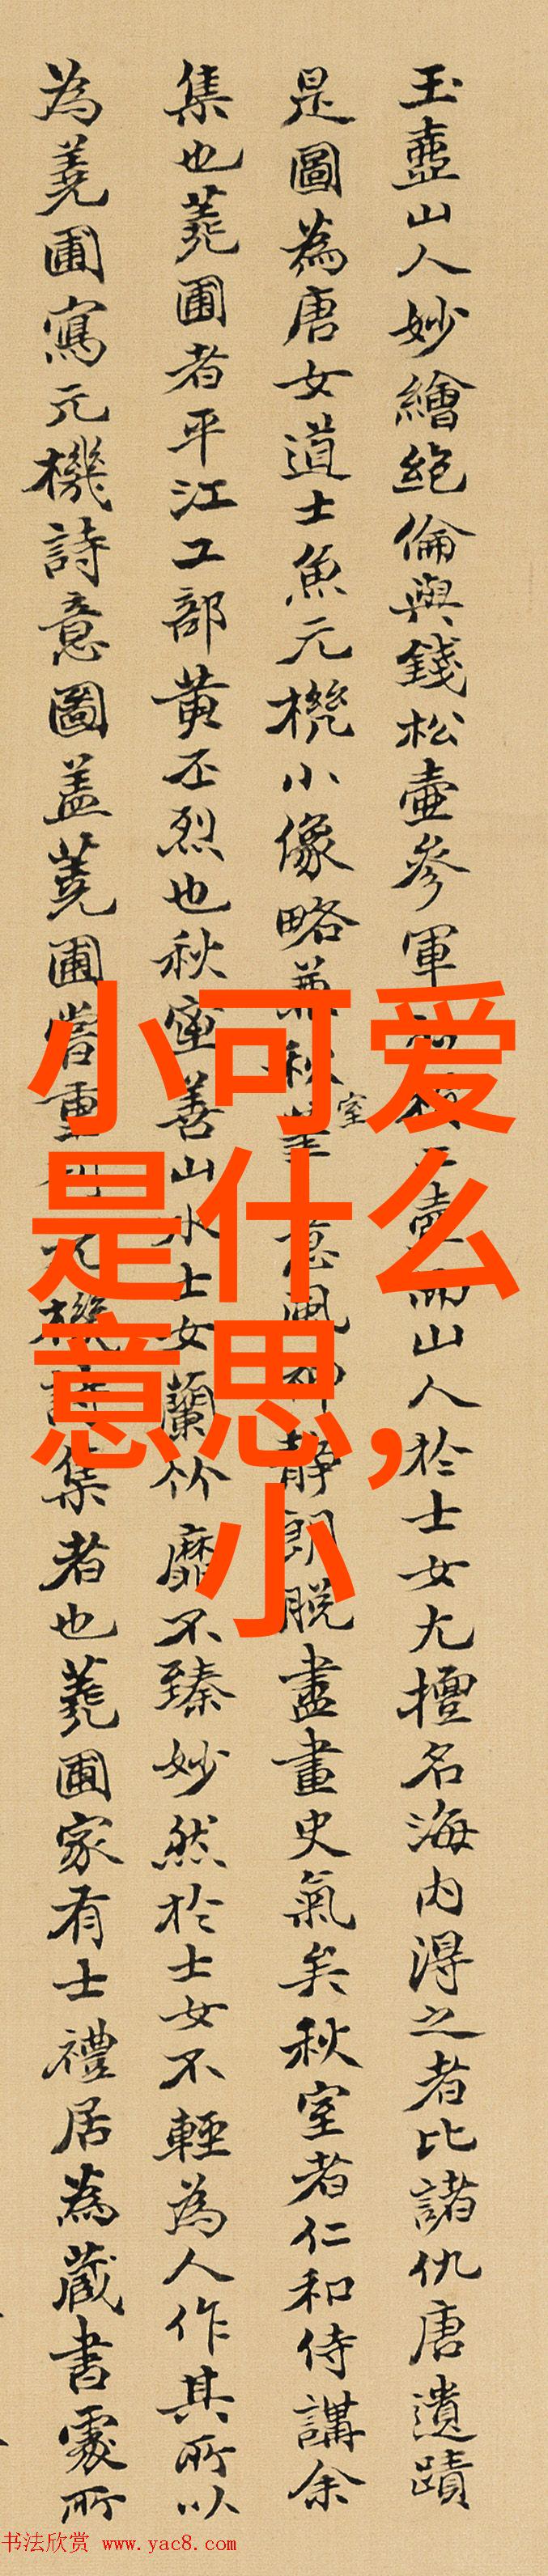 玉壺山人妙繪絕倫與錢松壺參軍山人於士女尤擅名海內得之者比諸仇唐遺蹟
是圖為唐女道士魚元機小像略靜朗脫盡畫史氣矣秋室者仁和侍講余
集也蕘圃者平江工部黃丕烈也秋室善山水士女蘭竹靡不臻妙然於士女不輕為人作其所以
為蕘圃寫元機詩意圖盖蕘圃嘗重集者也蕘圃家有士禮居為藏書處所
小可爱
是什么
意思,
小
书法欣赏 www.yac8.com